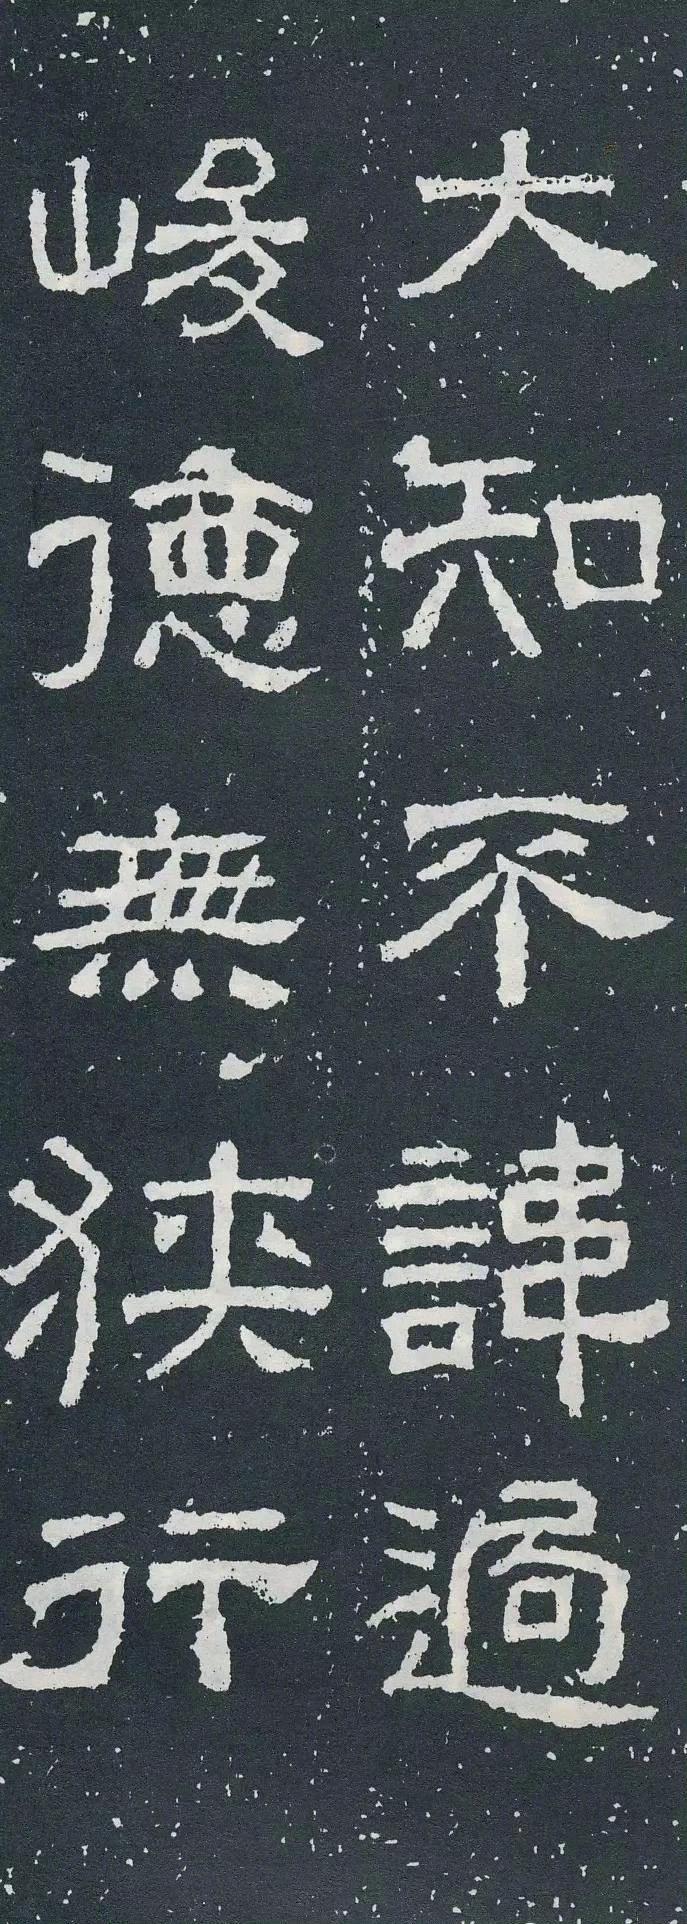 大知不諱過
峻德無狹行